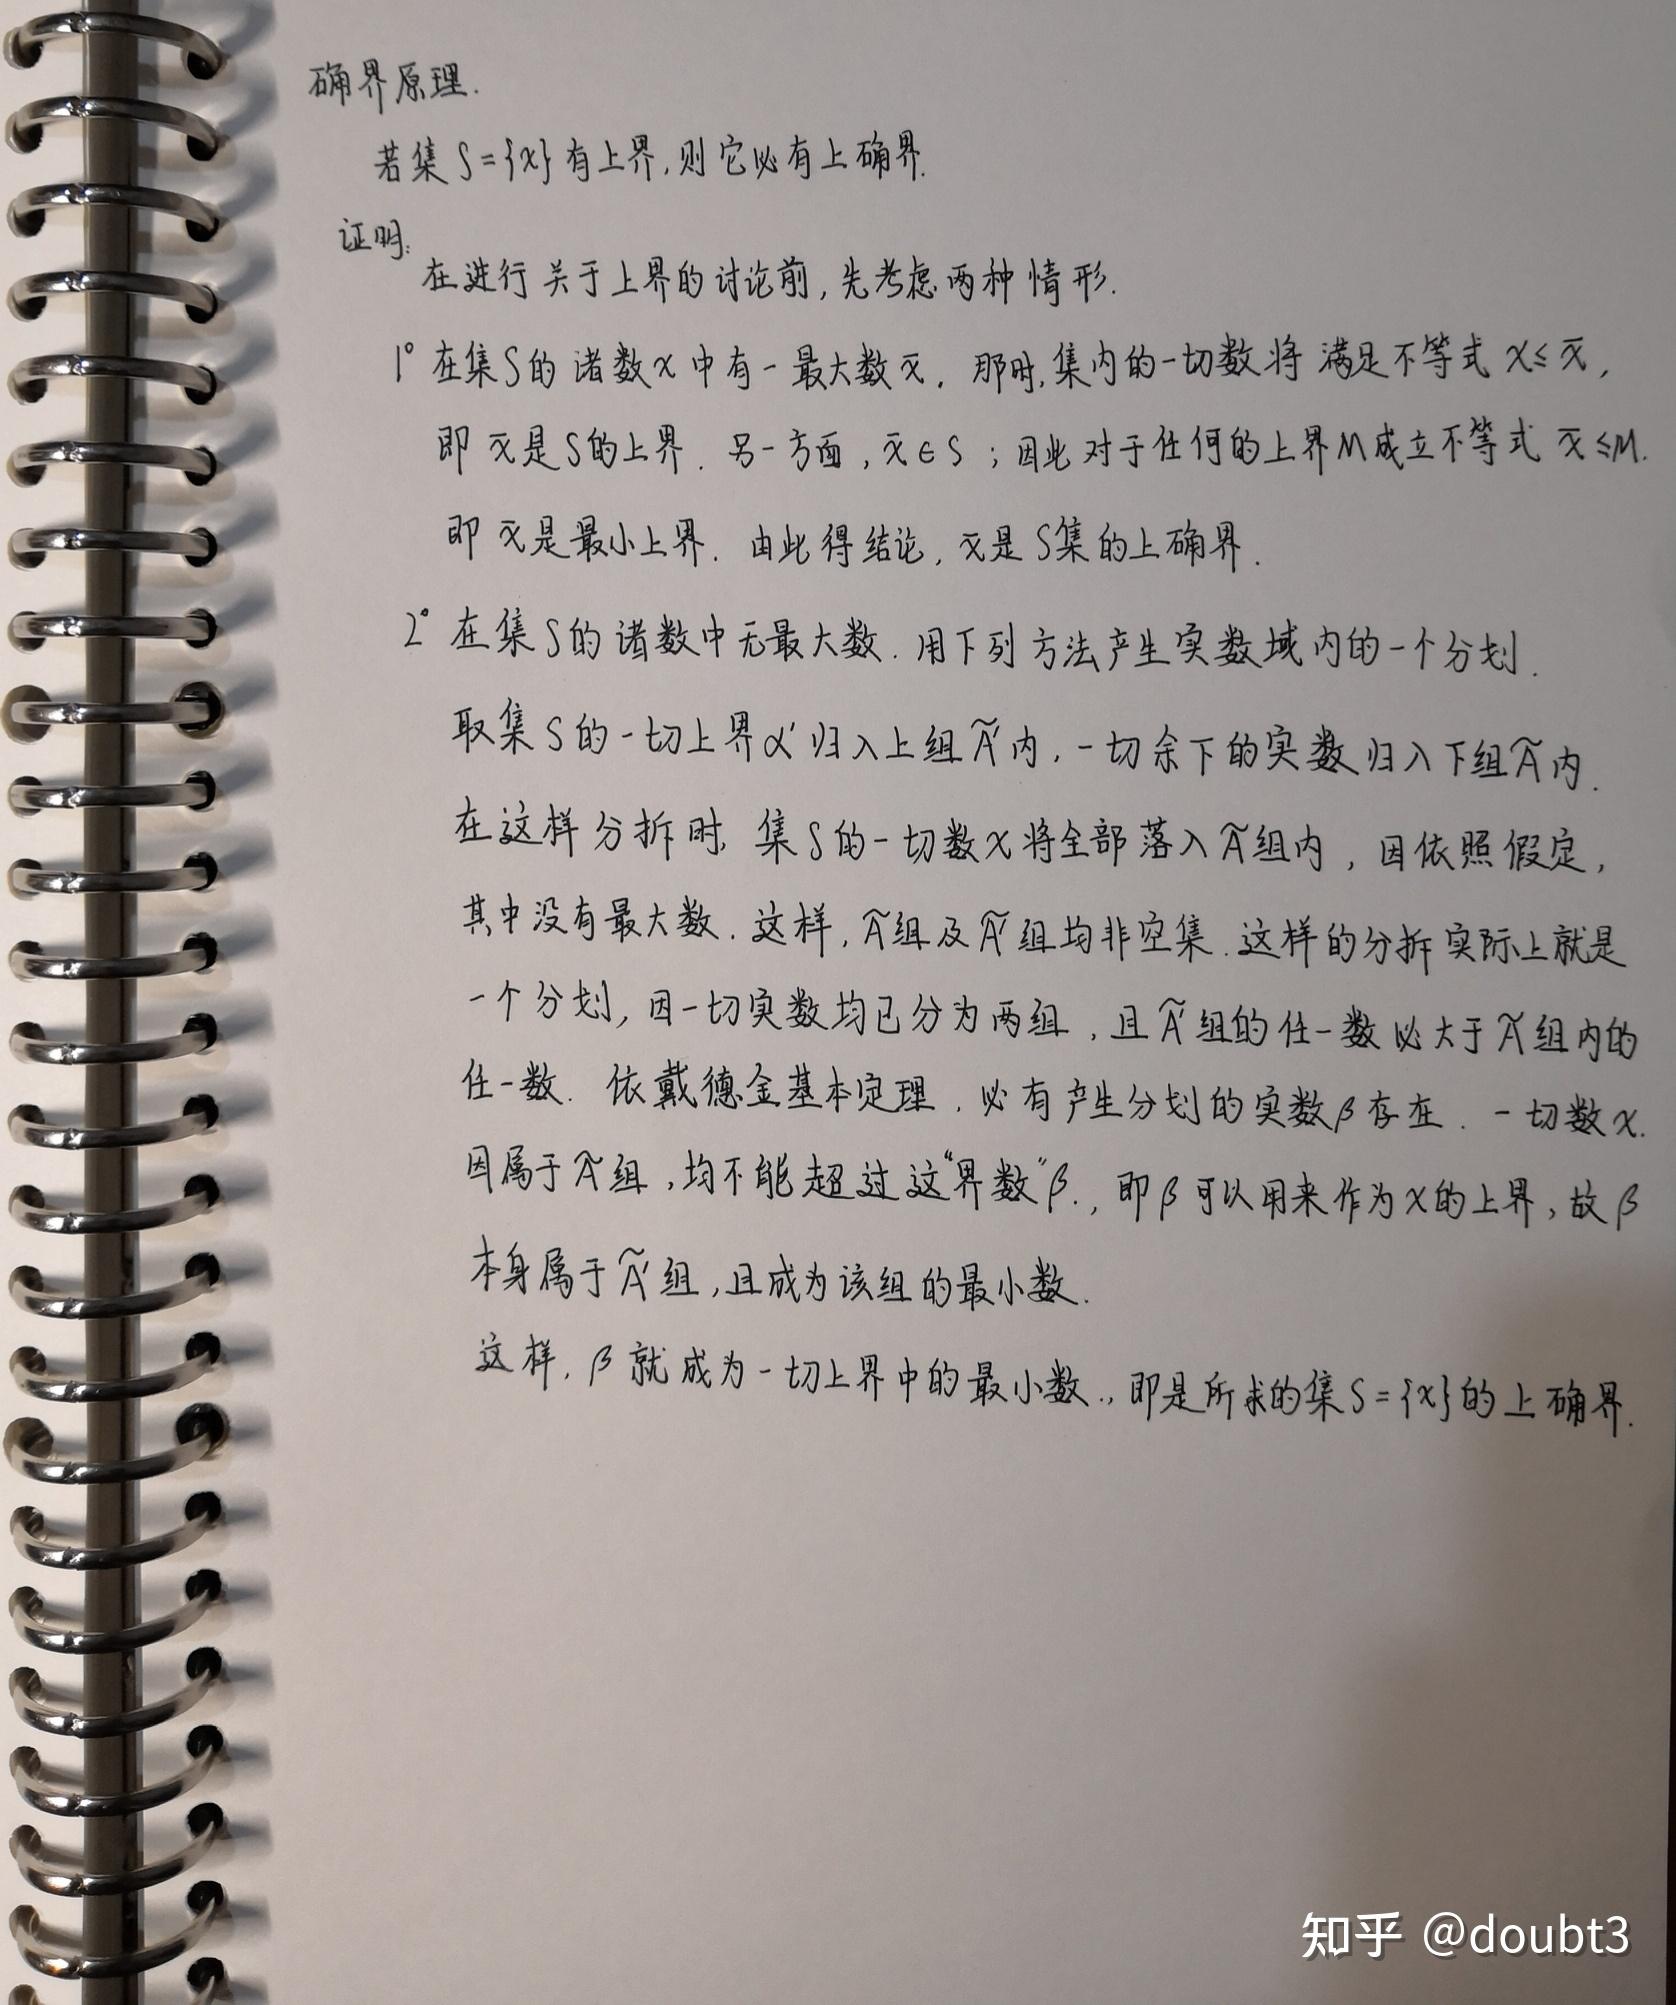 确界原理.
若集 S={x} 有上界,则它必有上确界.
证明:
在进行关于上界的讨论前,先考虑两种情形.
1° 在集S的诸数x中有一最大数x̄. 那时,集内的一切数将满足不等式 x≤x̄,
即 x̄是S的上界. 另一方面, x̄∈S ; 因此对于任何的上界M成立不等式 x̄≤M.
即 x̄是最小上界. 由此得结论, x̄是S集的上确界.
2° 在集S的诸数中无最大数. 用下列方法产生实数域内的一个分划.
取集S的一切上界α′归入上组Ã′内, 一切余下的实数归入下组Ã内.
在这样分拆时, 集S的一切数x将全部落入Ã组内, 因依照假定,
其中没有最大数. 这样, Ã组及Ã′组均非空集. 这样的分拆实际上就是
一个分划, 因一切实数均已分为两组, 且Ã′组的任一数必大于Ã组内的
任一数. 依戴德金基本定理, 必有产生分划的实数β存在. 一切数x.
因属于Ã组, 均不能超过这“界数”β., 即β可以用来作为x的上界, 故β
本身属于Ã′组, 且成为该组的最小数.
这样, β就成为一切上界中的最小数., 即是所求的集S={x}的上确界.
知乎 @doubt3